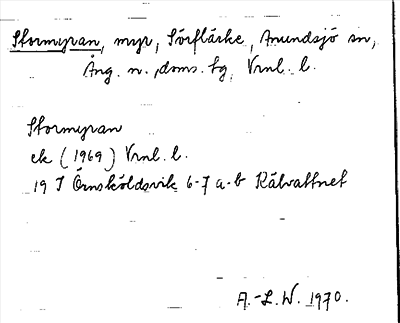 Stormyran, myr, Sörflärke, Anundsjö sn,
Ång. n. doms. tg, Vrnl. l.
Stormyran
ek (1969) Vrnl. l.
19 I Örnsköldsvik 6-7 a-b Rälvattnet
A.-L.W. 1970.